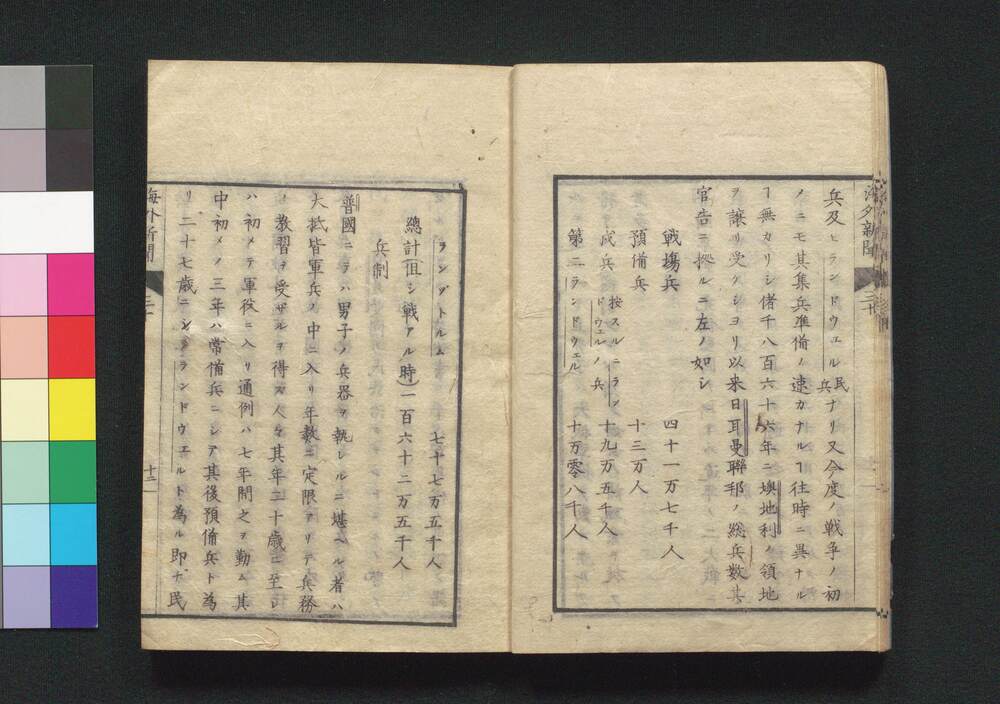 海外新聞
三十
兵及ヒランドウエル民兵ナリ又今度ノ戦争ノ初
ノニモ其集兵準備ノ速カナルヿ往時ニ異ナル
ヿ無カリシ偖千八百六十六年ニ墺地利ノ領地
ヲ譲リ受ケシヨリ以来日耳曼聯邦ノ総兵数其
官告ニ拠ルニ左ノ如シ
戦場兵 四十一万七千人
預備兵 十三万人
戍兵 按スルニランドウエルノ兵 十九万五千人
第二ランドウエル 十万零八千人
ランヅトルム 七十七万五千人
總計(但シ戦アル時)一百六十二万五千人
兵制
普國ニテハ男子ノ兵器ヲ執レルニ堪ヘル者ハ
大抵皆軍兵ノ中ニ入リ年数ニ定限アリテ兵務
ノ教習ヲ受ザルヲ得ス人々其年二十歳ニ至レ
ハ初メテ軍役ニ入リ通例ハ七年間之ヲ勤ム其
中初メノ三年ハ常備兵ニシテ其後預備兵ト為
リ二十七歳ニシテランドウエルト為ル即ナ民
海外新聞
三十
十二